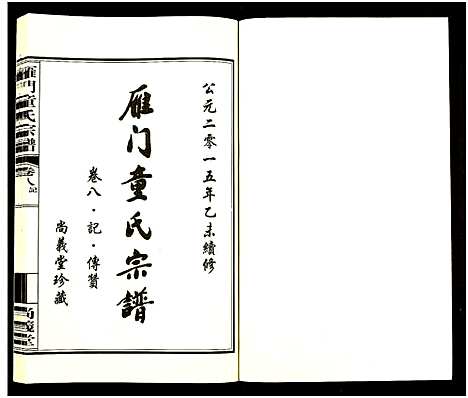 公元二零一五年乙未續修
雁门童氏宗譜
卷八·記·傳贊
尚義堂珍藏
雁門童氏宗譜
卷八
尚義堂